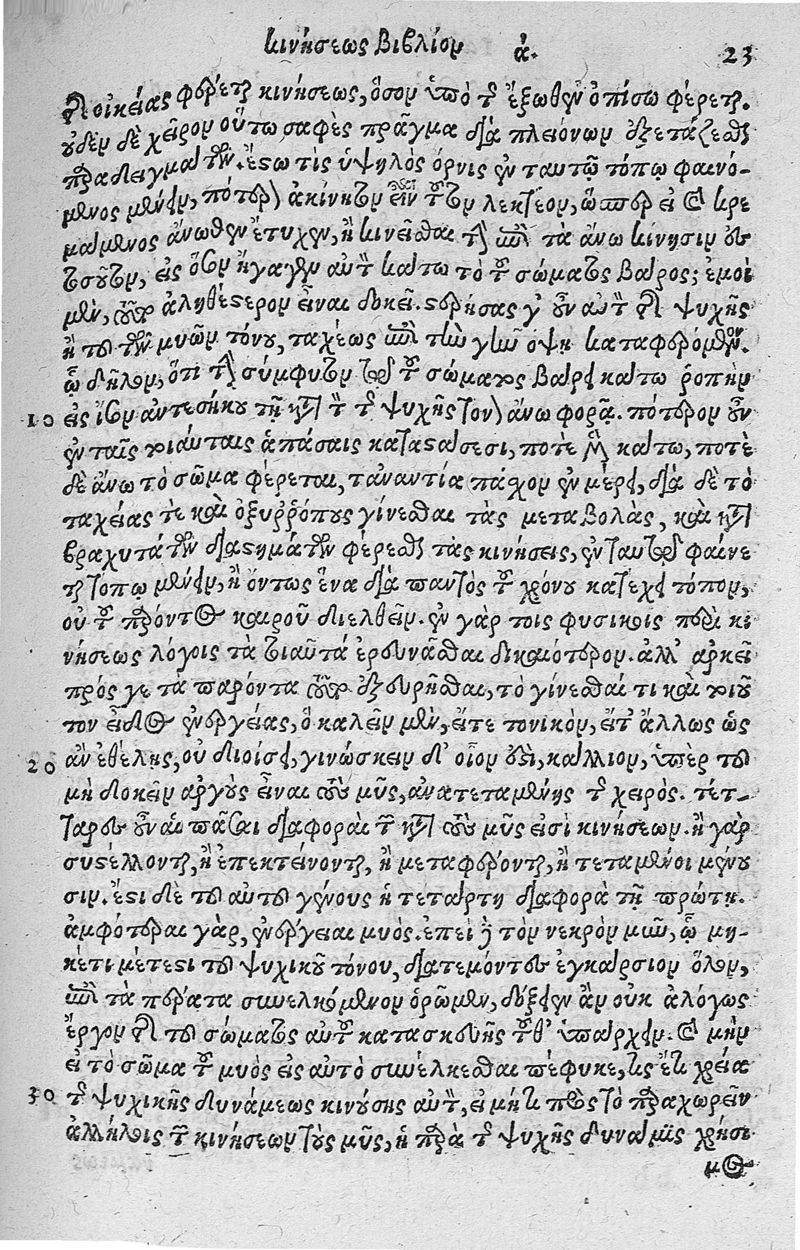 κινήσεως βιβλίον ά. 23
τῆς οἰκείας φέρεται κινήσεως, ὅσον ὑπὸ τῆς ἔξωθεν ὀπίσω φέρεται.
οὐδὲν δὲ χεῖρον οὕτω σαφὲς πρᾶγμα διὰ πλειόνων ἐξετάζεσθαι
παραδειγμάτων. ἔστω τὶς ὑψηλὸς ὄρνις ἐν ταυτῷ τόπῳ φαινό-
μενος μένειν, πότερον ἀκίνητον εἶναι τοῦτον λεκτέον, ὥσπερ εἰ καὶ κρε
μάμενος ἄνωθεν ἔτυχεν, ἢ κινεῖσθαι τὴν ἐπὶ τὰ ἄνω κίνησιν
τοσοῦτον, εἰς ὅσον ἤγαγεν αὐτὸν κάτω τὸ τοῦ σώματος βάρος; ἐμοὶ
μὲν, τοῦτο ἀληθέστερον εἶναι δοκεῖ. στερήσας γ' οὖν αὐτὸν τῆς ψυχῆς
ἢ τοῦ τῶν μυῶν τόνου, ταχέως ἐπὶ τὴν γῆν ὄψει καταφερόμενον.
ᾧ δῆλον, ὅτι τὴν σύμφυτον τῷ τοῦ σώματος βάρει κάτω ῥοπὴν
10 εἰς ἴσον ἀντεσήκου τῇ κατὰ τὸν τῆς ψυχῆς τόνον ἄνω φορᾷ. πότερον οὖν
ἐν ταῖς τοιαύταις ἁπάσαις καταστάσεσι, ποτὲ μὲν κάτω, ποτὲ
δὲ ἄνω τὸ σῶμα φέρεται, τἀναντία πάσχον ἐν μέρει, διὰ δὲ τὸ
ταχείας τὲ καὶ ὀξυῤῥόπους γίνεσθαι τὰς μεταβολὰς, καὶ κατὰ
βραχυτάτων διαστημάτων φέρεσθαι τὰς κινήσεις, ἐν ταυτῷ φαίνε
ται τόπῳ μένειν, ἢ ὄντως ἕνα διὰ παντὸς τοῦ χρόνου κατέχει τόπον,
οὐ τοῦ παρόντος καιροῦ διελθεῖν. ἐν γὰρ τοῖς φυσικοῖς περὶ κι
νήσεως λόγοις τὰ τοιαῦτά ἐρευνᾶσθαι δικαιότερον. ἀλλ' ἀρκεῖ
πρός γε τὰ παρόντα τοῦτο ἐξευρῆσθαι, τὸ γίνεσθαί τι καὶ τοιοῦ
τον εἶδος ἐνεργείας, ὃ καλεῖν μὲν, εἴτε τονικὸν, εἴτ' ἄλλως ὡς
20 ἂν ἐθέλῃς, οὐ διοίσει, γινώσκειν δ' οἷον ἐστὶ, κάλλιον, ὑπὲρ τοῦ
μὴ δοκεῖν ἀργοὺς εἶναι τοὺς μῦς, ἀνατεταμένης τῆς χειρός. τέτ-
ταρες οὖν αἱ πᾶσαι διαφοραὶ τῶν κατὰ τοὺς μῦς εἰσὶ κινήσεων. ἢ γὰρ
συστέλλονται, ἢ ἐπεκτείνονται, ἢ μεταφέρονται, ἢ τεταμένοι μένου
σιν. ἔστι δὲ τοῦ αὐτοῦ γένους ἡ τετάρτη διαφορὰ τῇ πρώτῃ.
ἀμφότεραι γὰρ, ἐνέργειαι μυός. ἐπεὶ δὲ τὸν νεκρὸν μῦν, ᾧ μη-
κέτι μέτεστι τοῦ ψυχικοῦ τόνου, διατεμόντες ἐγκάρσιον ὅλον,
ἐπὶ τὰ πέρατα συνελκόμενον ὁρῶμεν, δόξειεν ἂν οὐκ ἀλόγως
ἔργον τῆς τοῦ σώματος αὐτοῦ κατασκευῆς τοῦθ' ὑπάρχειν. καὶ μὴν
εἰ τὸ σῶμα τοῦ μυὸς εἰς αὐτὸ συνέλκεσθαι πέφυκε, τίς ἔτι χρεία
30 τῆς ψυχικῆς δυνάμεως κινούσης αὐτὸν, εἰ μήτι πρὸς τὸ παραχωρεῖν
ἀλλήλοις τῶν κινήσεων τοὺς μῦς, ἡ παρὰ τῆς ψυχῆς δύναμις χρήσι
μος